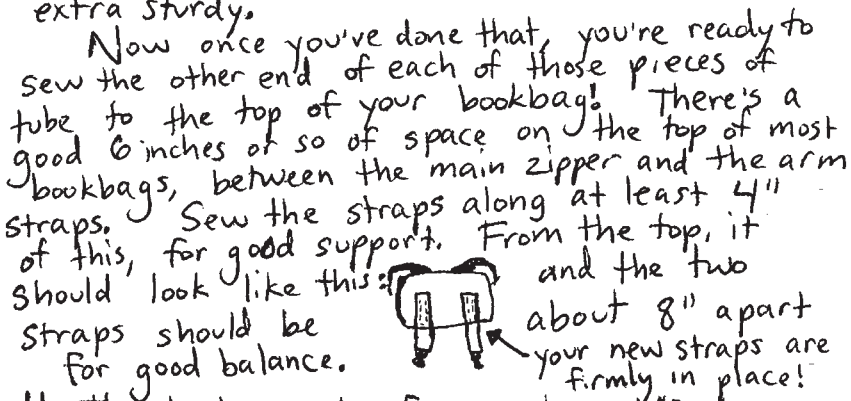 extra sturdy.
Now once you've done that, you're ready to
sew the other end of each of those pieces of
tube to the top of your bookbag! There's a
good 6 inches or so of space on the top of most
bookbags, between the main zipper and the arm
straps. Sew the straps along at least 4"
of this, for good support. From the top, it
should look like this: and the two
straps should be about 8" apart
for good balance. your new straps are
firmly in place!